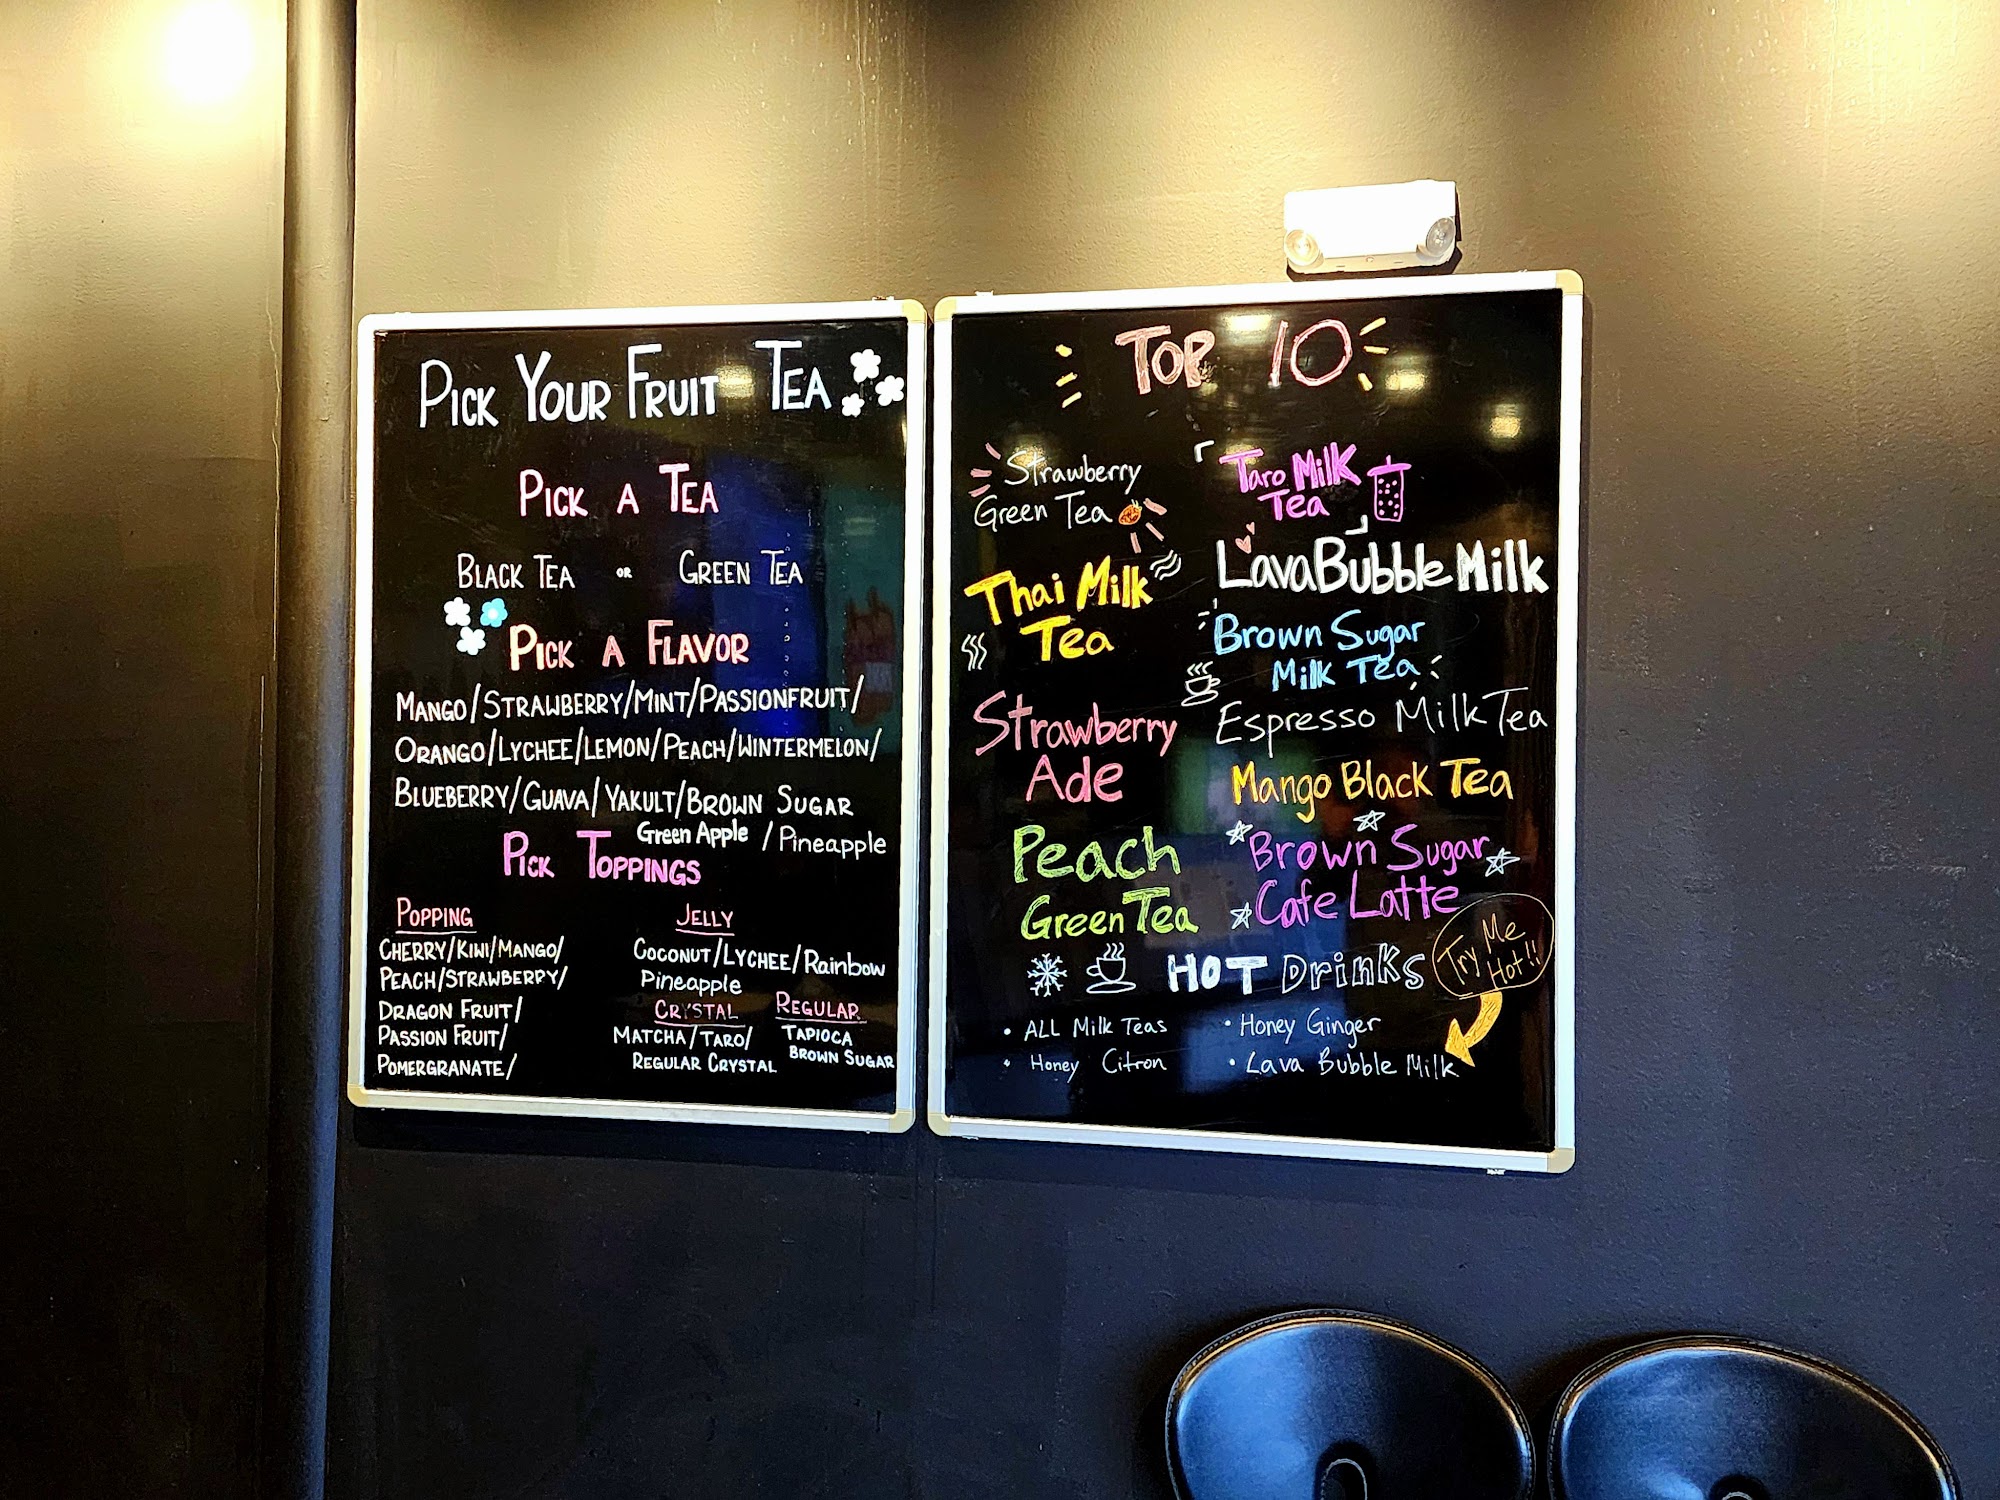 PICK YOUR FRUIT TEA
PICK A TEA
BLACK TEA OR GREEN TEA
PICK A FLAVOR
MANGO/STRAWBERRY/MINT/PASSIONFRUIT/
ORANGO/LYCHEE/LEMON/PEACH/WINTERMELON/
BLUEBERRY/GUAVA/YAKULT/BROWN SUGAR
Green Apple / Pineapple
PICK TOPPINGS
POPPING
CHERRY/KIWI/MANGO/
PEACH/STRAWBERRY/
DRAGON FRUIT/
PASSION FRUIT/
POMERGRANATE/
JELLY
COCONUT/LYCHEE/Rainbow
Pineapple
CRYSTAL
MATCHA/TARO/
REGULAR CRYSTAL
REGULAR
TAPIOCA
BROWN SUGAR
TOP 10
Strawberry
Green Tea
Thai Milk
Tea
Strawberry
Ade
Peach
Green Tea
Taro Milk
Tea
Lava Bubble Milk
Brown Sugar
Milk Tea
Espresso Milk Tea
Mango Black Tea
Brown Sugar
Cafe Latte
HOT DrinKs
Try Me
Hot!!
• ALL Milk Teas
• Honey Citron
• Honey Ginger
• Lava Bubble Milk